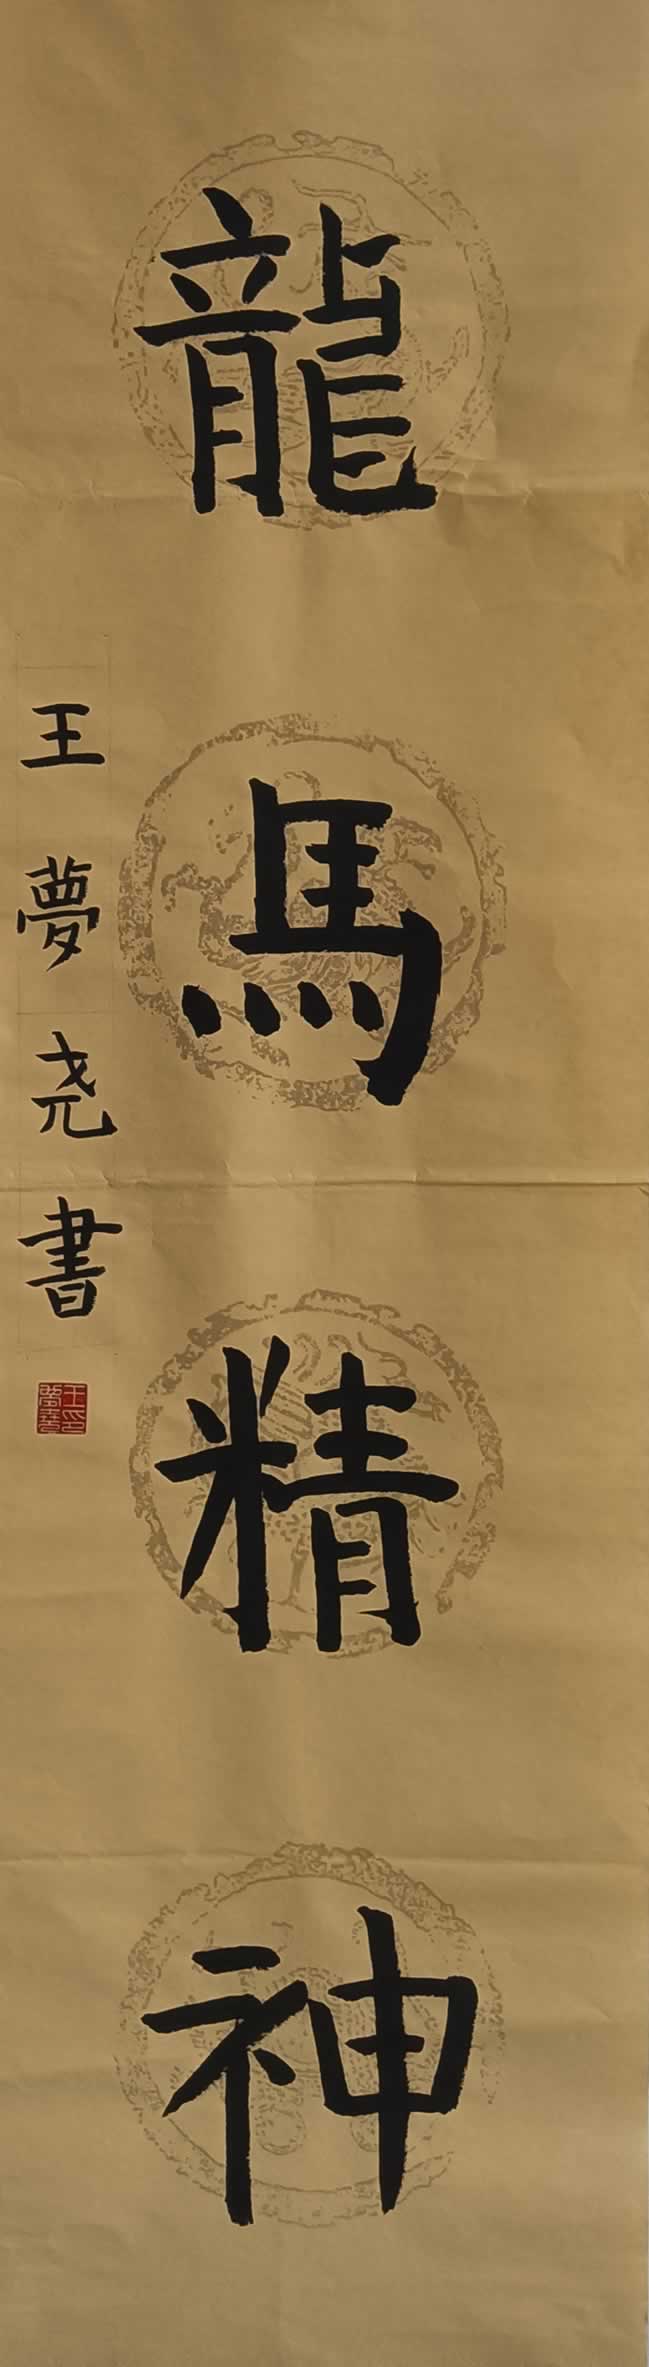 龍馬精神
王夢尧書